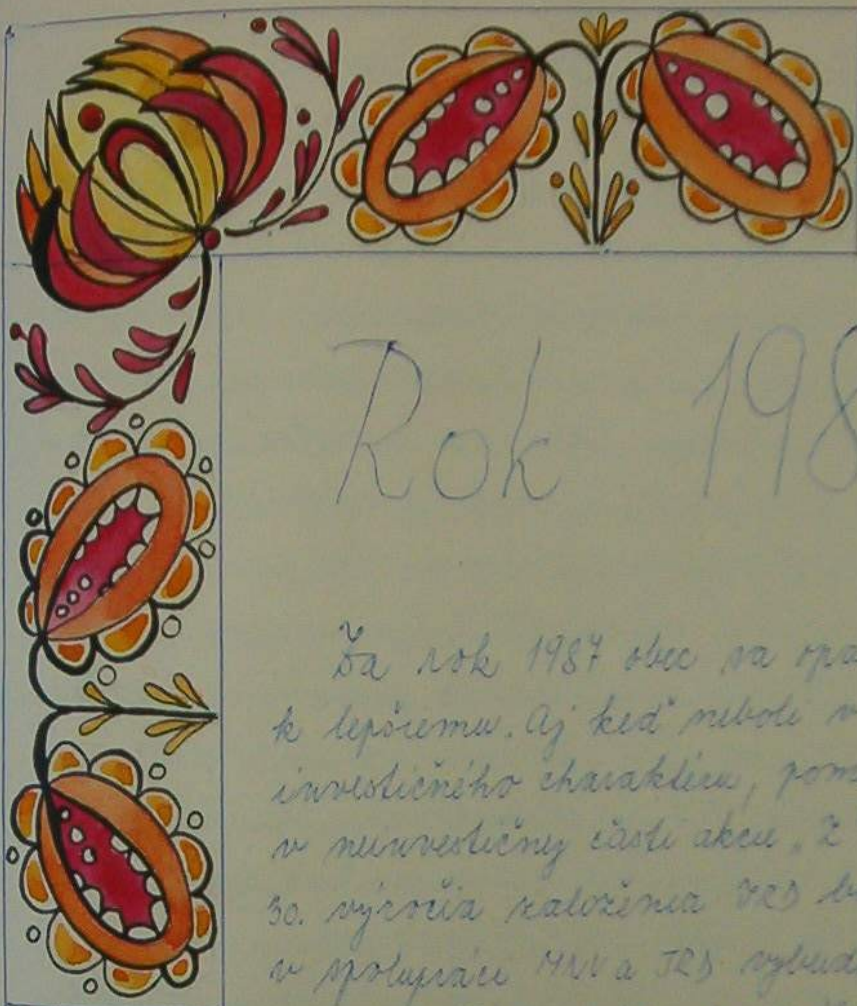 Rok 198
Za rok 1987 obec sa opä
k lepšiemu. Aj keď neboli v
investičného charakteru, pom
v neinvestičnej časti akcie "Z
30. výročia založenia JRD b
v spolupráci MNV a JRD vybud